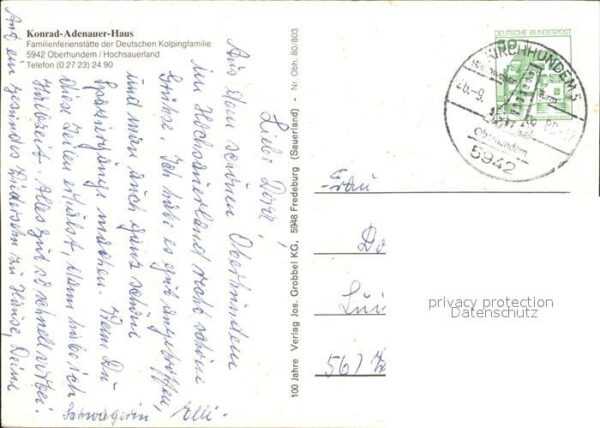 Konrad-Adenauer-Haus
Familienferienstätte der Deutschen Kolpingfamilie
5942 Oberhundem / Hochsauerland
Telefon (0 27 23) 24 90
Liebe Dora!
Aus dem schönen Oberhundem
im Hochsauerland recht schöne
Grüße. Ich habe es gut angetroffen,
und man auch ganz schöne
Spaziergänge machen. Wenn Du
diese Zeilen erhälst, dann habe ich
Halbzeit. Alles geht so schnell vorbei.
Auf ein gesundes Wiedersehn zu Hause, Deine
Schwägerin Elli.
100 Jahre Verlag Jos. Grobbel KG, 5948 Fredeburg (Sauerland) - Nr. Obh. 80/803
DEUTSCHE BUNDESPOST
KIRCHHUNDEM 5
Oberhundem
5942
Frau
Do
Lui
567
privacy protection
Datenschutz